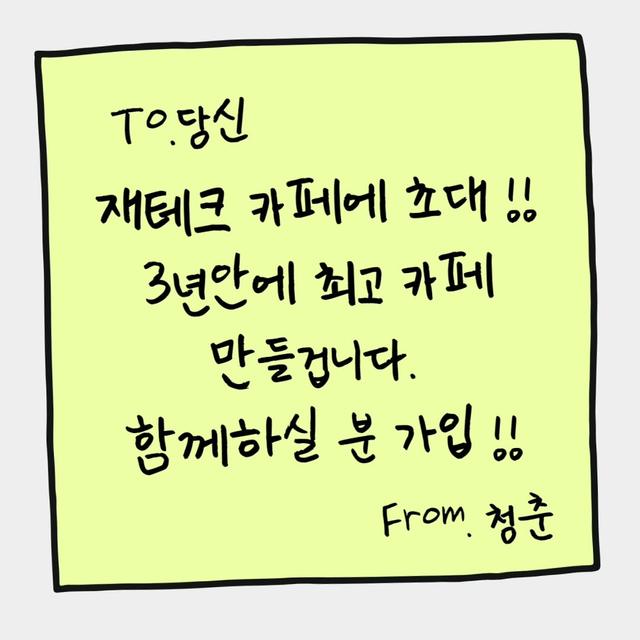 To.당신
재테크 카페에 초대 !!
3년안에 최고 카페
만들겁니다.
함께하실 분 가입 !!
From. 청춘